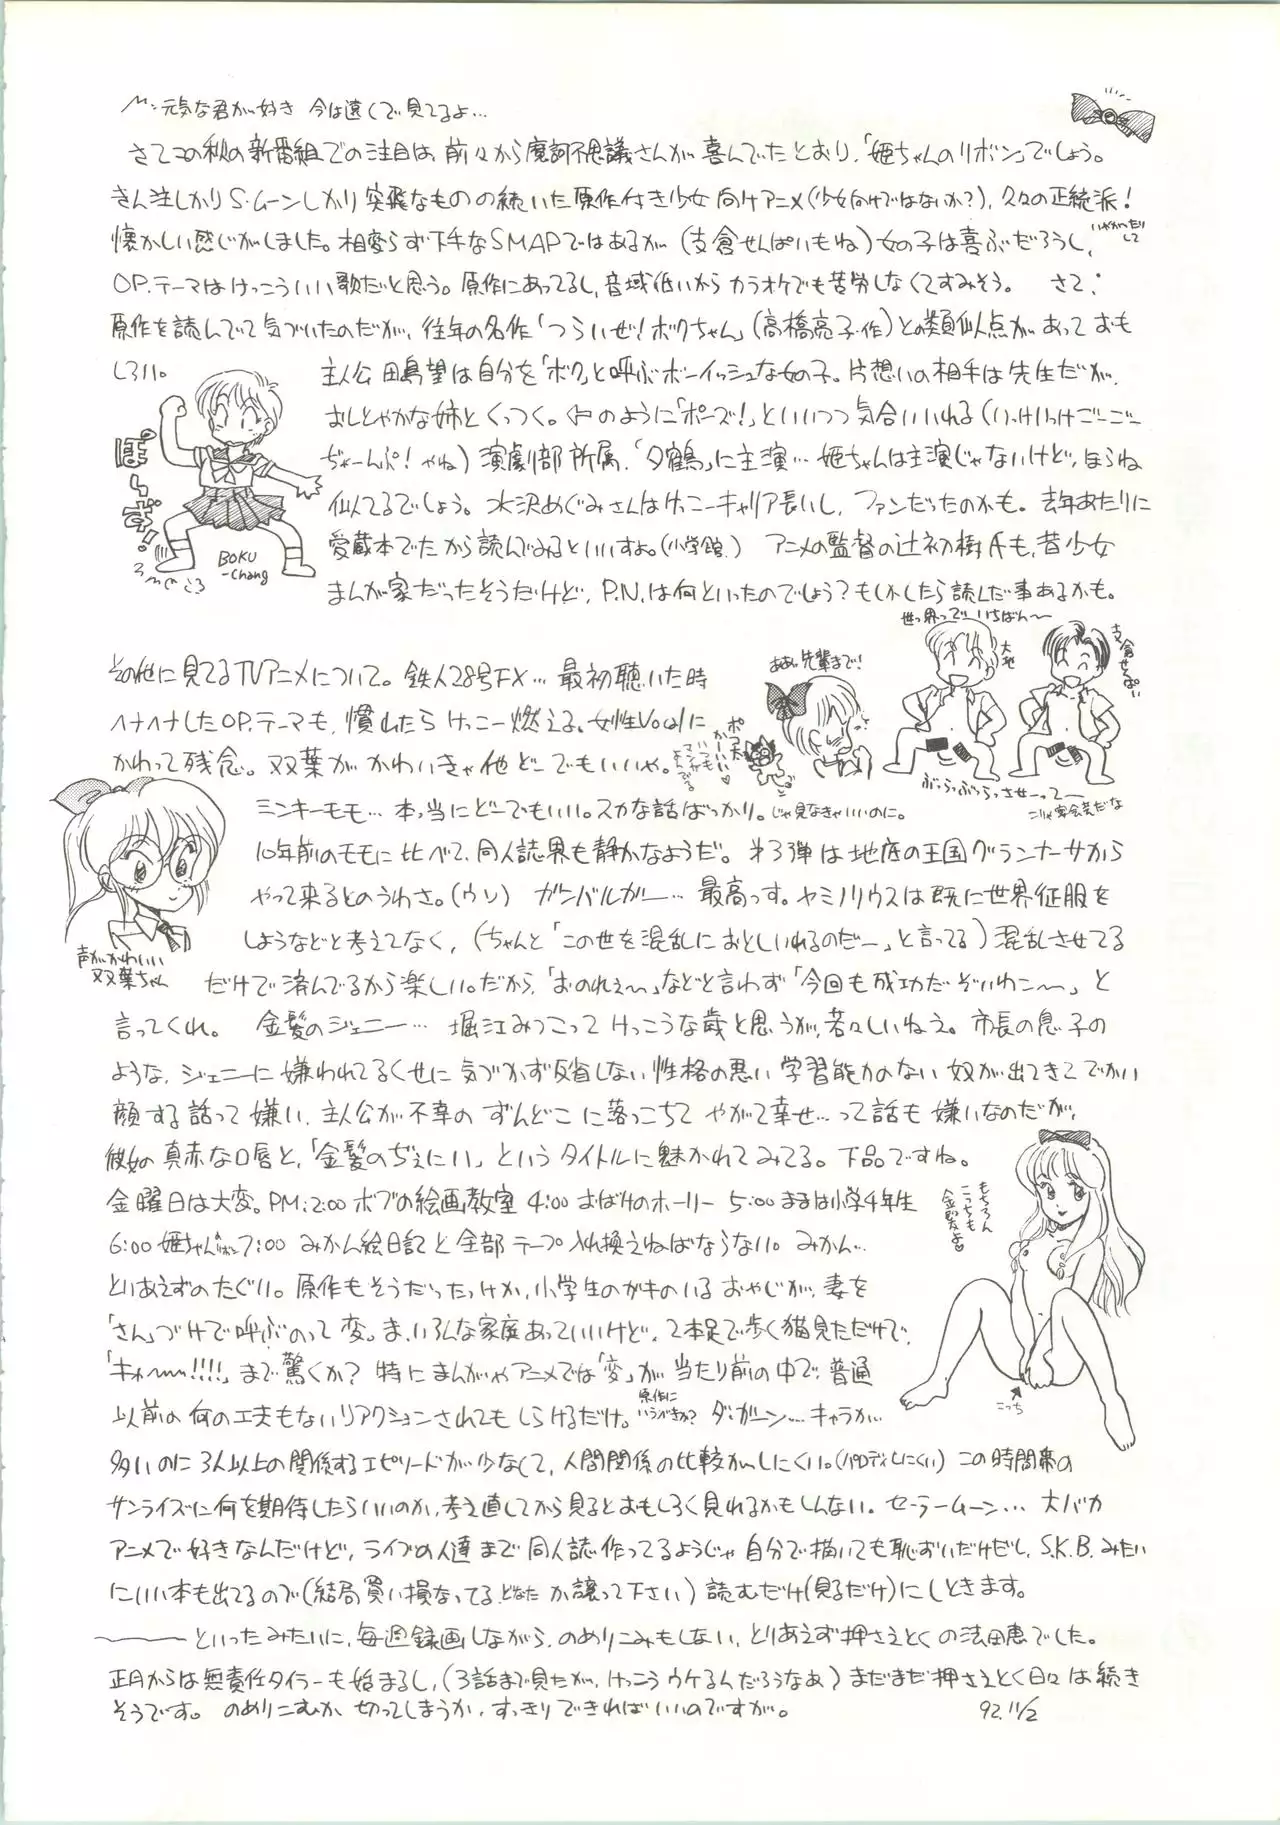 〽:元気な君が好き 今は遠くで見てるよ…
さてこの秋の新番組での注目は、前々から魔訶不思議さんが喜んでたとおり、「姫ちゃんのリボン」でしょう。
きん注しかりS・ムーンしかり突飛なものの続いた原作付き少女向けアニメ(少女向けではないか?)、久々の正統派!
懐かしい感じがしました。相変らず下手なSMAPではあるが(支倉せんぱいもね)女の子は喜ぶだろうし、
いやがったりして
OP.テーマはけっこういい歌だと思う。原作にあってるし、音域低いからカラオケでも苦労しなくてすみそう。 さて:
原作を読んでて気づいたのだが、往年の名作「つらいぜ!ボクちゃん」(高橋亮子・作)との類似点があっておも
しろい。
主人公 田島望は自分を「ボク」と呼ぶボーイッシュな女の子。片想いの相手は先生だが、
おしとやかな姉とくっつく。のように「ポーズ!」といいつつ気合いいれる(いけいけごーごー
ぢゃーんぷ!やね)演劇部所属、「夕鶴」に主演…姫ちゃんは主演じゃないけど、ほらね
似てるでしょう。水沢めぐみさんはけっこーキャリア長いし、ファンだったのかも。去年あたりに
愛蔵本でたから読んでみるといいすよ。(小学館) アニメの監督の辻初樹氏も、昔少女
まんが家だったそうだけど、P.N.は何といったのでしょう?もしかしたら読んだ事あるかも。
ぽーず!
BOKU
-chang
世っ界ってー いちばんー
大地
支倉せんぱい
ああっ先輩まで!
ポコ太
かーいい♡
ぶっらっぶっらっさせーってー
こりゃ宴会芸だな
その他に見てるTVアニメについて。鉄人28号FX…最初聴いた時
ヘナヘナしたOP.テーマも、慣れたらけっこー燃える。女性Vocalに
かわって残念。双葉がかわいきゃ他どーでもいいや。
ミンキーモモ…本っ当にどーでもいい。スカな話ばっかり。じゃ見なきゃいいのに。
10年前のモモに比べて、同人誌界も静かなようだ。第3弾は地底の王国グランナーサから
やって来るとのうわさ。(ウソ) ガンバルガー…最高っす。ヤミノリウスは既に世界征服を
しようなどと考えてなく、(ちゃんと「この世を混乱におとしいれるのだー」と言ってる)混乱させてる
声がかわいい
双葉ちゃん
だけで済んでるから楽しい。だから、「おのれぇ~」などと言わず「今回も成功だぞいわこ~」と
言ってくれ。 金髪のジェニー… 堀江みつこってけっこうな歳と思うが、若々しいねえ。市長の息子の
ような、ジェニーに嫌われてるくせに気づかず反省しない性格の悪い学習能力のない奴が出てきてでかい
顔する話って嫌い、主人公が不幸のずんどこに落っこちてやがて幸せ…って話も嫌いなのだが、
彼女の真赤な口唇と、「金髪のぢぇにい」というタイトルに魅かれてみてる。下品ですね。
金曜日は大変。PM:2:00 ボブの絵画教室 4:00 おばけのホーリー 5:00 ままは小学4年生
6:00 姫ちゃんのリボン 7:00 みかん絵日記と全部テープ入れ換えねばならない。みかん…
とりあえずのたぐい。原作もそうだったっけか、小学生のガキのいるおやじが、妻を
「さん」づけで呼ぶのって変。ま、いろんな家庭あっていいけど、2本足で歩く猫見ただけで、
「キャ~~!!!!」まで驚くか? 特にまんがやアニメでは「変」が当たり前の中で、普通
以前の何の工夫もないリアクションされてもしらけるだけ。
ダ・ガーン…キャラが
もちろん
こっちも
金髪よ♡
こっち
多いのに3人以上の関係するエピソードが少なくて、人間関係の比較がしにくい。(パロディしにくい) この時間帯の
サンライズに何を期待したらいいのか、考え直してから見るとおもしろく見れるかもしんない。セーラームーン…大バカ
アニメで好きなんだけど、ライブの人達まで同人誌作ってるようじゃ自分で描いても恥ずいだけだし、S.K.B.みたい
にいい本も出てるので(結局買い損なってる、どなたか譲って下さい)読むだけ(見るだけ)にしときます。
といったみたいに、毎週録画しながら、のめりこみもしない、とりあえず押さえとくの法田恵でした。
正月からは無責任タイラーも始まるし、(3話まで見たが、けっこうウケるんだろうなぁ)まだまだ押さえとく日々は続き
そうです。 のめりこむか、切ってしまうか、すっきりできればいいのですが。
92.11/2